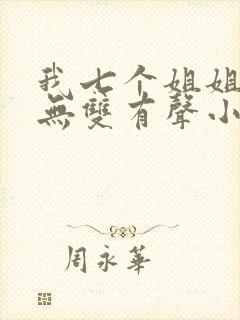 我七个姐姐
無雙有聲小
周永華